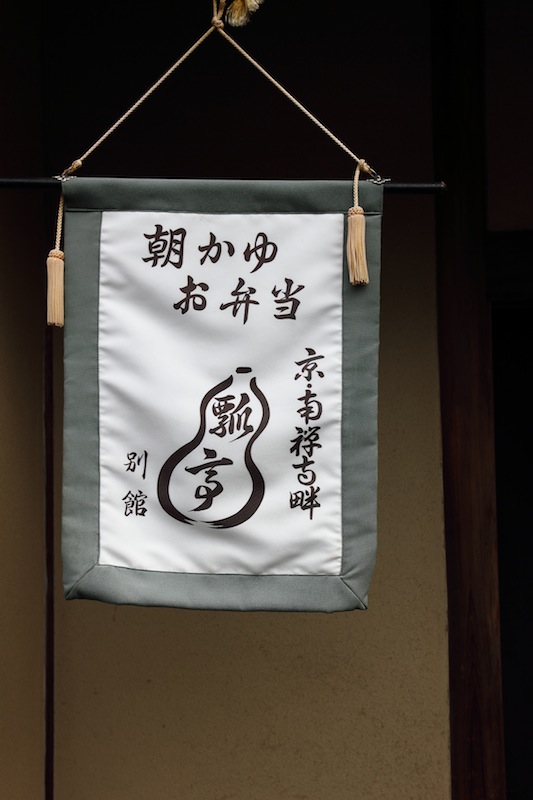 朝かゆ
お弁当
京・南禅寺畔
瓢亭
別館